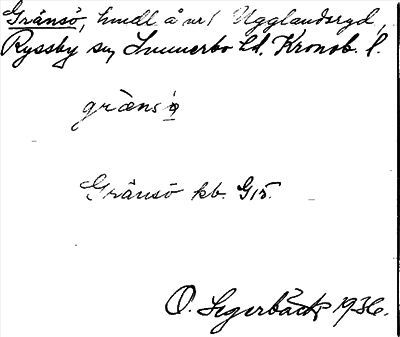 Gränsö, hmdl å nr 1 Ugglandsryd,
Ryssby sn, Sunnerbo hd. Kronob. l.
græns ö
Gränsö kb. G15.
O. Segerbäck 1936.